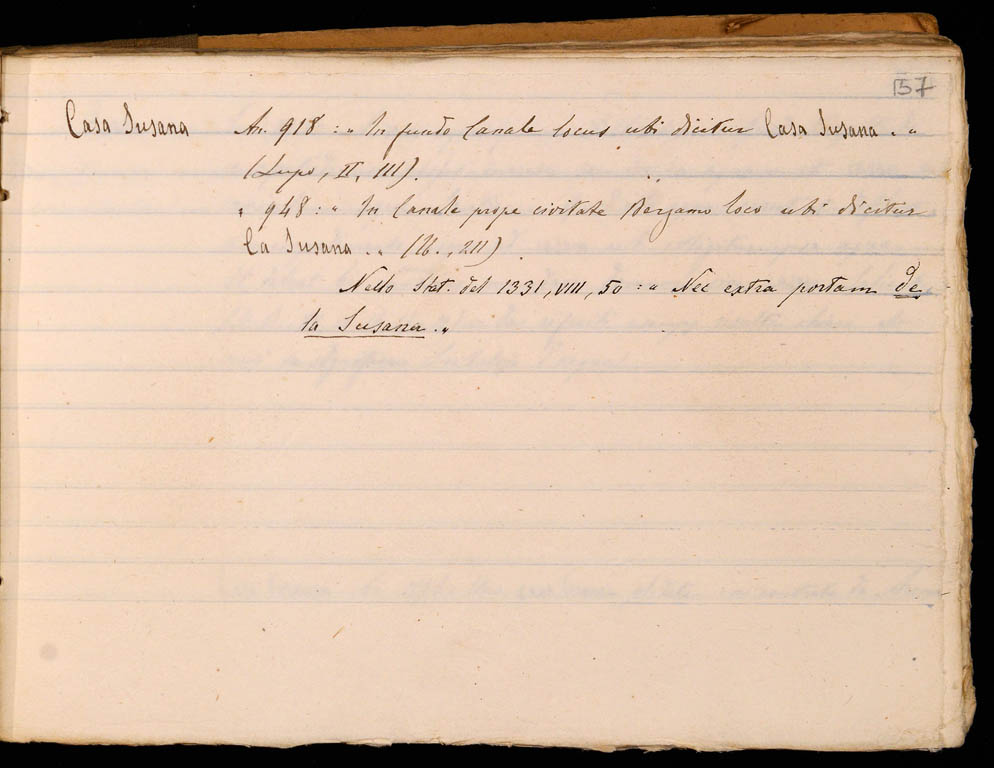 57
Casa Susana An. 918 : " In fundo Canale locus ubi dicitur Casa Susana . "
(Lupo, II, 111).
" 948 : " In Canale prope civitate Bergamo loco ubi dicitur
Ca Susana . " (Ib., 211) .
Nello Stat. del 1331, VIII, 50 : " Nec extra portam de
la Susana . "